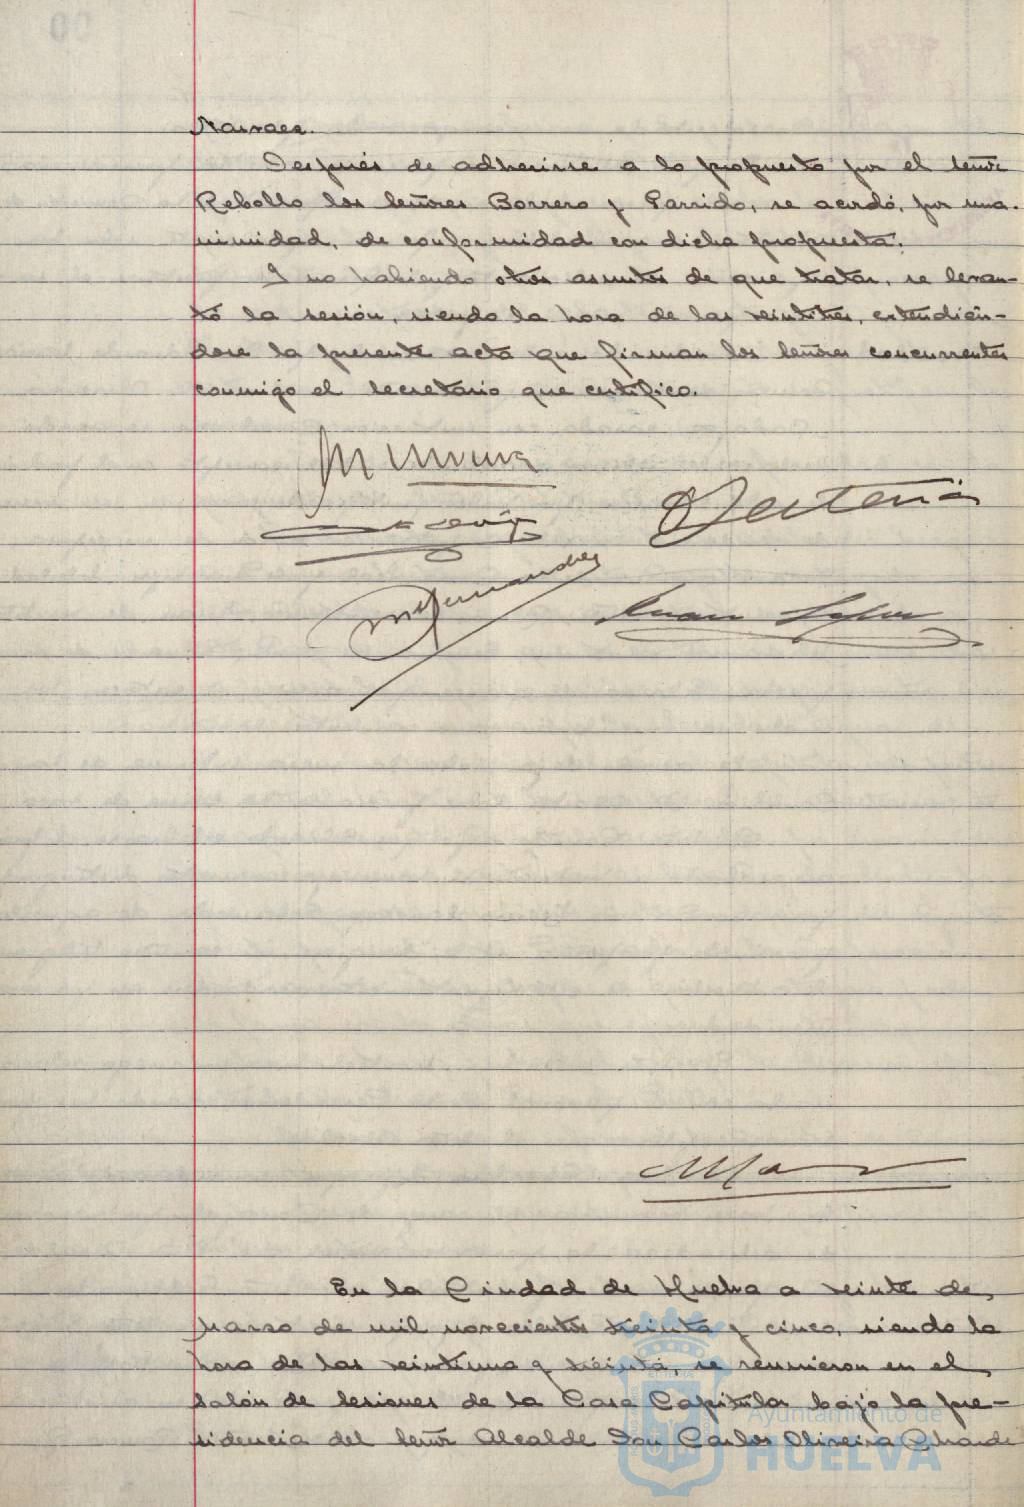 Narvaez.
Después de adherirse a lo propuesto por el señor
Rebollo los señores Borrero y Garrido, se acordó, por una-
nimidad, de conformidad con dicha propuesta.
Y no habiendo otros asuntos de que tratar, se levan-
tó la sesión, siendo la hora de las veintitres, extendién-
dose la presente acta que firman los señores concurrentes
conmigo el secretario que certifico.
M Fernandez
Juan
En la Ciudad de Huelva a veinte de
Marzo de mil novecientos treinta y cinco, siendo la
hora de las veintiuna y treinta, se reunieron en el
salón de sesiones de la Casa Capitular bajo la pre-
sidencia del señor Alcalde Don Carlos Oliveira Chardi
Ayuntamiento de
HUELVA